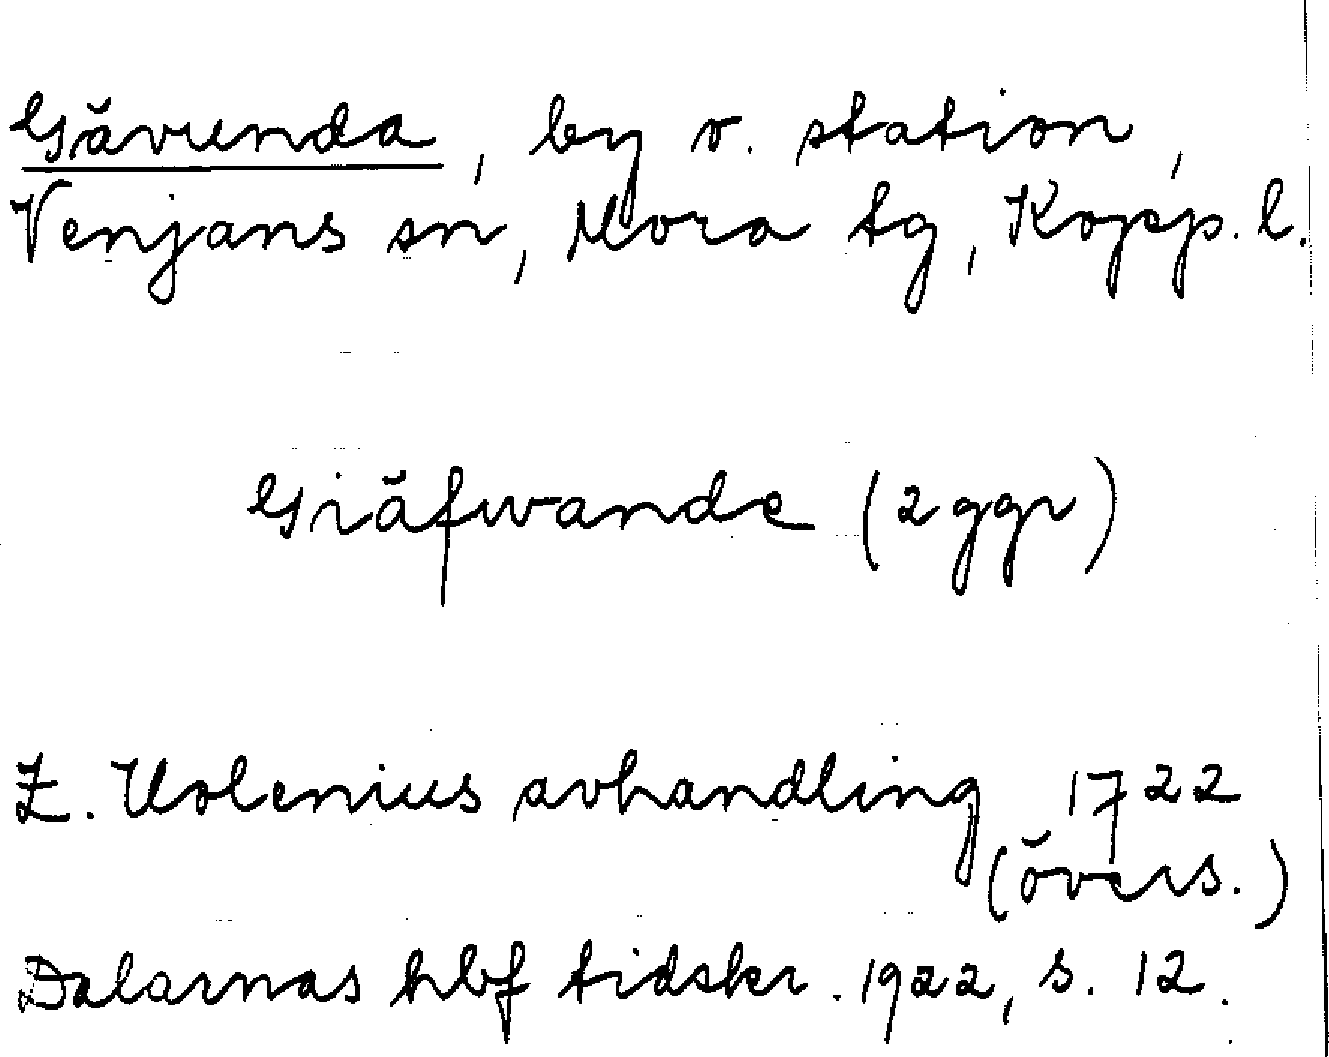 Gävunda, by o. station,
Venjans sn, Mora tg, Kopp. l.
Giäfwande (2 ggr)
Z. Holenius avhandling 1722
(övers.)
Dalarnas hbf tidskr. 1922, s. 12.